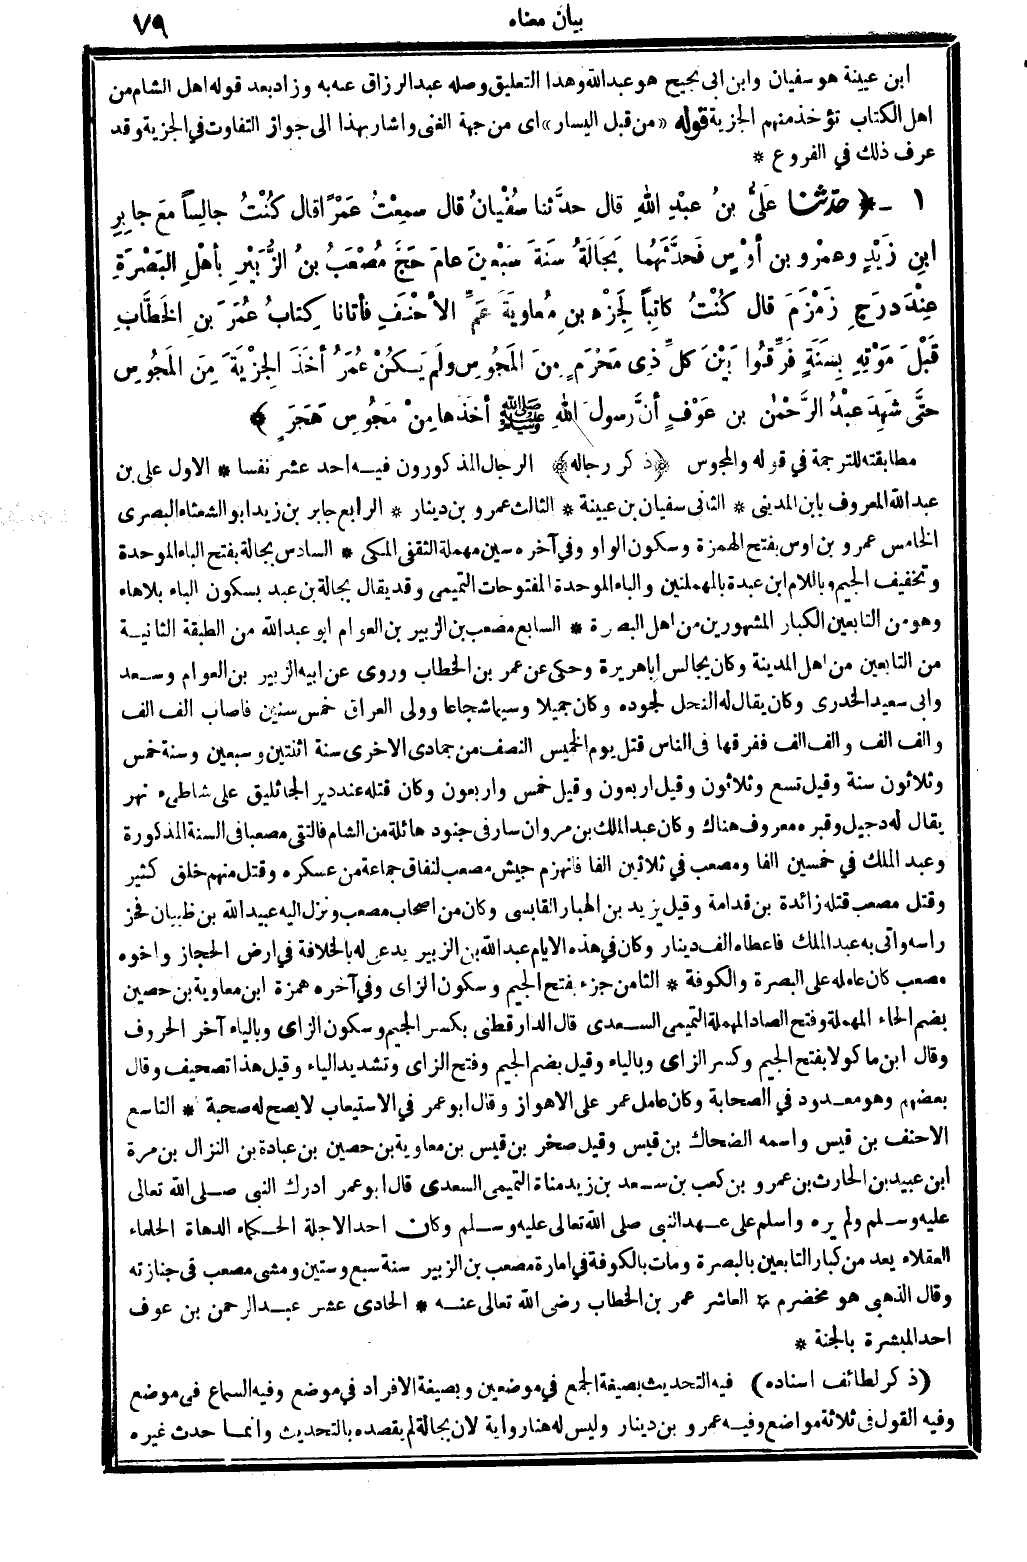 بيان معناه ٧٩
ابن عيينة هو سفيان وابن ابى نجيح هو عبدالله وهذا التعليق وصله عبدالرزاق عنه به وزاد بعد قوله اهل الشام من
اهل الكتاب تؤخذ منهم الجزية قوله «من قبل اليسار» اى من جهة الغنى واشار بهذا الى جواز التفاوت في الجزية وقد
عرف ذلك في الفروع *
١ - ﴿ حدّثنا عَلِيُّ بنُ عبْدِ اللهِ قال حدَّثنا سُفْيانُ قال سمِعْتُ عَمْرًا قال كُنْتُ جالِساً مَعَ جابِرِ
ابنِ زَيْدٍ وعمْرِو بن أوْسٍ فَحدَّثَهُما بَجالَةُ سَنَةَ سَبْعِينَ عامَ حَجَّ مُصْعَبُ بنُ الزُّبَيْرِ بأهْلِ البَصْرَةِ
عِنْدَ دَرَجِ زَمْزَمَ قال كُنْتُ كاتِباً لِجَزْءِ بنِ مُعاويَةَ عَمِّ الأحْنَفِ فأتانا كِتابُ عُمَرَ بنِ الخَطَّابِ
قَبْلَ مَوْتِهِ بِسَنَةٍ فَرِّقُوا بَيْنَ كلِّ ذِى مَحْرَمٍ مِنَ المَجُوسِ ولَمْ يَكُنْ عُمَرُ أخَذَ الجِزْيَةَ مِنَ المَجُوسِ
حتَّى شَهِدَ عبْدُ الرَّحْمٰنِ بن عَوْفٍ أنَّ رسولَ اللهِ ﷺ أخَذَها مِنْ مَجُوسِ هَجَرَ ﴾
مطابقته للترجمة في قوله والمجوس ﴿ذكر رجاله﴾ الرجال المذكورون فيه احد عشر نفسا * الاول على بن
عبدالله المعروف بابن المدينى * الثانى سفيان بن عيينة * الثالث عمرو بن دينار * الرابع جابر بن زيد ابو الشعثاء البصرى
الخامس عمرو بن اوس بفتح الهمزة وسكون الواو وفي آخره سين مهملة الثقفى المكى * السادس بجالة بفتح الباء الموحدة
وتخفيف الجيم وباللام ابن عبدة بالمهملتين والباء الموحدة المفتوحات التميمى وقد يقال بجالة بن عبد بسكون الباء بلاهاء
وهو من التابعين الكبار المشهورين من اهل البصرة * السابع مصعب بن الزبير بن العوام ابو عبدالله من الطبقة الثانية
من التابعين من اهل المدينة وكان يجالس اباهريرة وحكى عن عمر بن الخطاب وروى عن ابيه الزبير بن العوام وسعد
وابى سعيد الخدرى وكان يقال له النحل لجوده وكان جميلا وسيما شجاعا وولى العراق خمس سنين فاصاب الف الف
والف الف والف الف ففرقها فى الناس قتل يوم الخميس النصف من جمادى الاخرى سنة اثنتين وسبعين وسنة خمس
وثلاثون سنة وقيل تسع وثلاثون وقيل اربعون وقيل خمس واربعون وكان قتله عند دير الجاثليق على شاطىء نهر
يقال له دجيل وقبره معروف هناك وكان عبد الملك بن مروان سار فى جنود هائلة من الشام فالتقى مصعبا فى السنة المذكورة
وعبد الملك في خمسين الفا ومصعب في ثلاثين الفا فانهزم جيش مصعب لنفاق جماعة من عسكره وقتل منهم خلق كثير
وقتل مصعب قتله زائدة بن قدامة وقيل زيد بن الهبار القابسى وكان من اصحاب مصعب ونزل اليه عبيد الله بن ظبيان فحز
راسه واتى به عبد الملك فاعطاه الف دينار وكان في هذه الايام عبدالله بن الزبير يدعى له بالخلافة في ارض الحجاز واخوه
مصعب كان عامله على البصرة والكوفة * الثامن جزء بفتح الجيم وسكون الزاى وفي آخره همزة ابن معاوية بن حصين
بضم الحاء المهملة وفتح الصاد المهملة التميمى السعدى قال الدارقطنى بكسر الجيم وسكون الزاى وبالياء آخر الحروف
وقال ابن ماكولا بفتح الجيم وكسر الزاى وبالياء وقيل بضم الجيم وفتح الزاى وتشديد الياء وقيل هذا تصحيف وقال
بعضهم وهو معدود في الصحابة وكان عامل عمر على الاهواز وقال ابو عمر في الاستيعاب لا يصح له صحبة * التاسع
الاحنف بن قيس واسمه الضحاك بن قيس وقيل صخر بن قيس بن معاوية بن حصين بن عبادة بن النزال بن مرة
ابن عبيد بن الحارث بن عمرو بن كعب بن سعد بن زيد مناة التميمى السعدى قال ابو عمر ادرك النبى صلى الله تعالى
عليه وسلم ولم يره واسلم على عهد النبى صلى الله تعالى عليه وسلم وكان احد الاجلة الحكماء الدهاة الحلماء
العقلاء يعد من كبار التابعين بالبصرة ومات بالكوفة في امارة مصعب بن الزبير سنة سبع وستين ومشى مصعب فى جنازته
وقال الذهبى هو مخضرم * العاشر عمر بن الخطاب رضى الله تعالى عنه * الحادى عشر عبد الرحمن بن عوف
احد المبشرة بالجنة *
(ذكر لطائف اسناده) فيه التحديث بصيغة الجمع في موضعين وبصيغة الافراد في موضع وفيه السماع فى موضع
وفيه القول فى ثلاثة مواضع وفيه عمرو بن دينار وليس له هنا رواية لان بجالة لم يقصده بالتحديث وانما حدث غيره